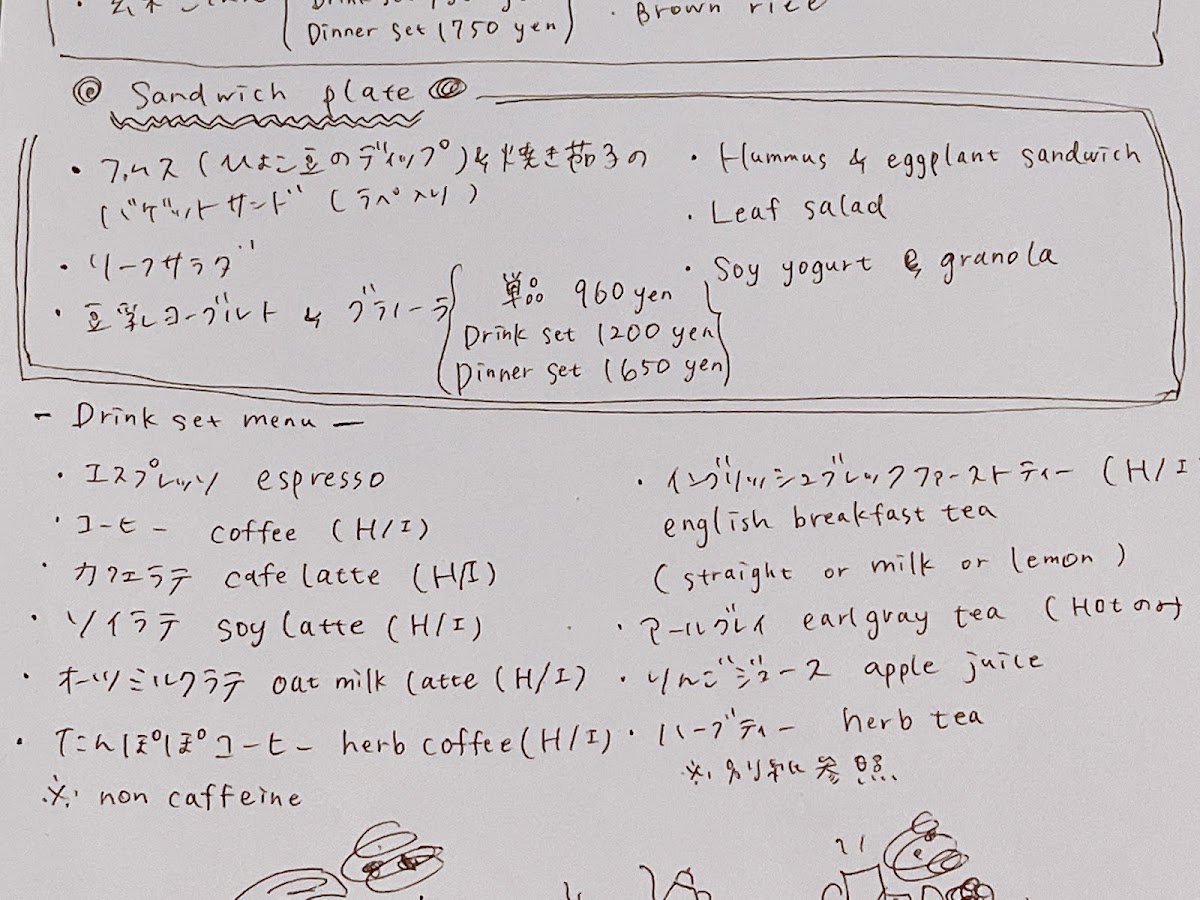 Dinner set 1750 yen
・Brown rice
◎ Sandwich plate ◎
・フムス(ひよこ豆のディップ)& 焼き茄子の
バゲットサンド (ラペ入り)
・リーフサラダ
・豆乳ヨーグルト & グラノーラ
単品 960 yen
Drink set 1200 yen
Dinner set 1650 yen
・Hummus & eggplant sandwich
・Leaf salad
・Soy yogurt & granola
- Drink set menu -
・エスプレッソ espresso
・コーヒー coffee (H/I)
・カフェラテ cafe latte (H/I)
・ソイラテ soy latte (H/I)
・オーツミルクラテ oat milk latte (H/I)
・たんぽぽコーヒー herb coffee (H/I)
※ non caffeine
・イングリッシュブレックファーストティー (H/I
english breakfast tea
(straight or milk or lemon)
・アールグレイ earl gray tea (Hotのみ
・りんごジュース apple juice
・ハーブティー herb tea
※別紙参照